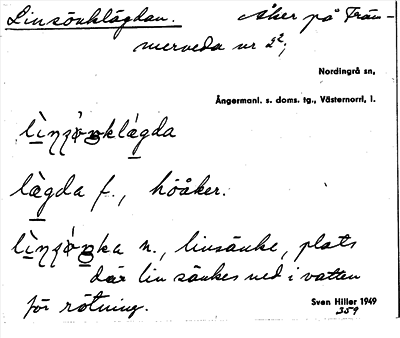 Linsönklägdan. Åker på Frän-
merveda nr 2²;
Nordingrå sn,
Ångermanl. s. doms. tg., Västernorrl. l.
lägda f., höåker.
n., linsänke, plats
där lin sänkes ned i vatten
för rötning.
Sven Hiller 1949
359